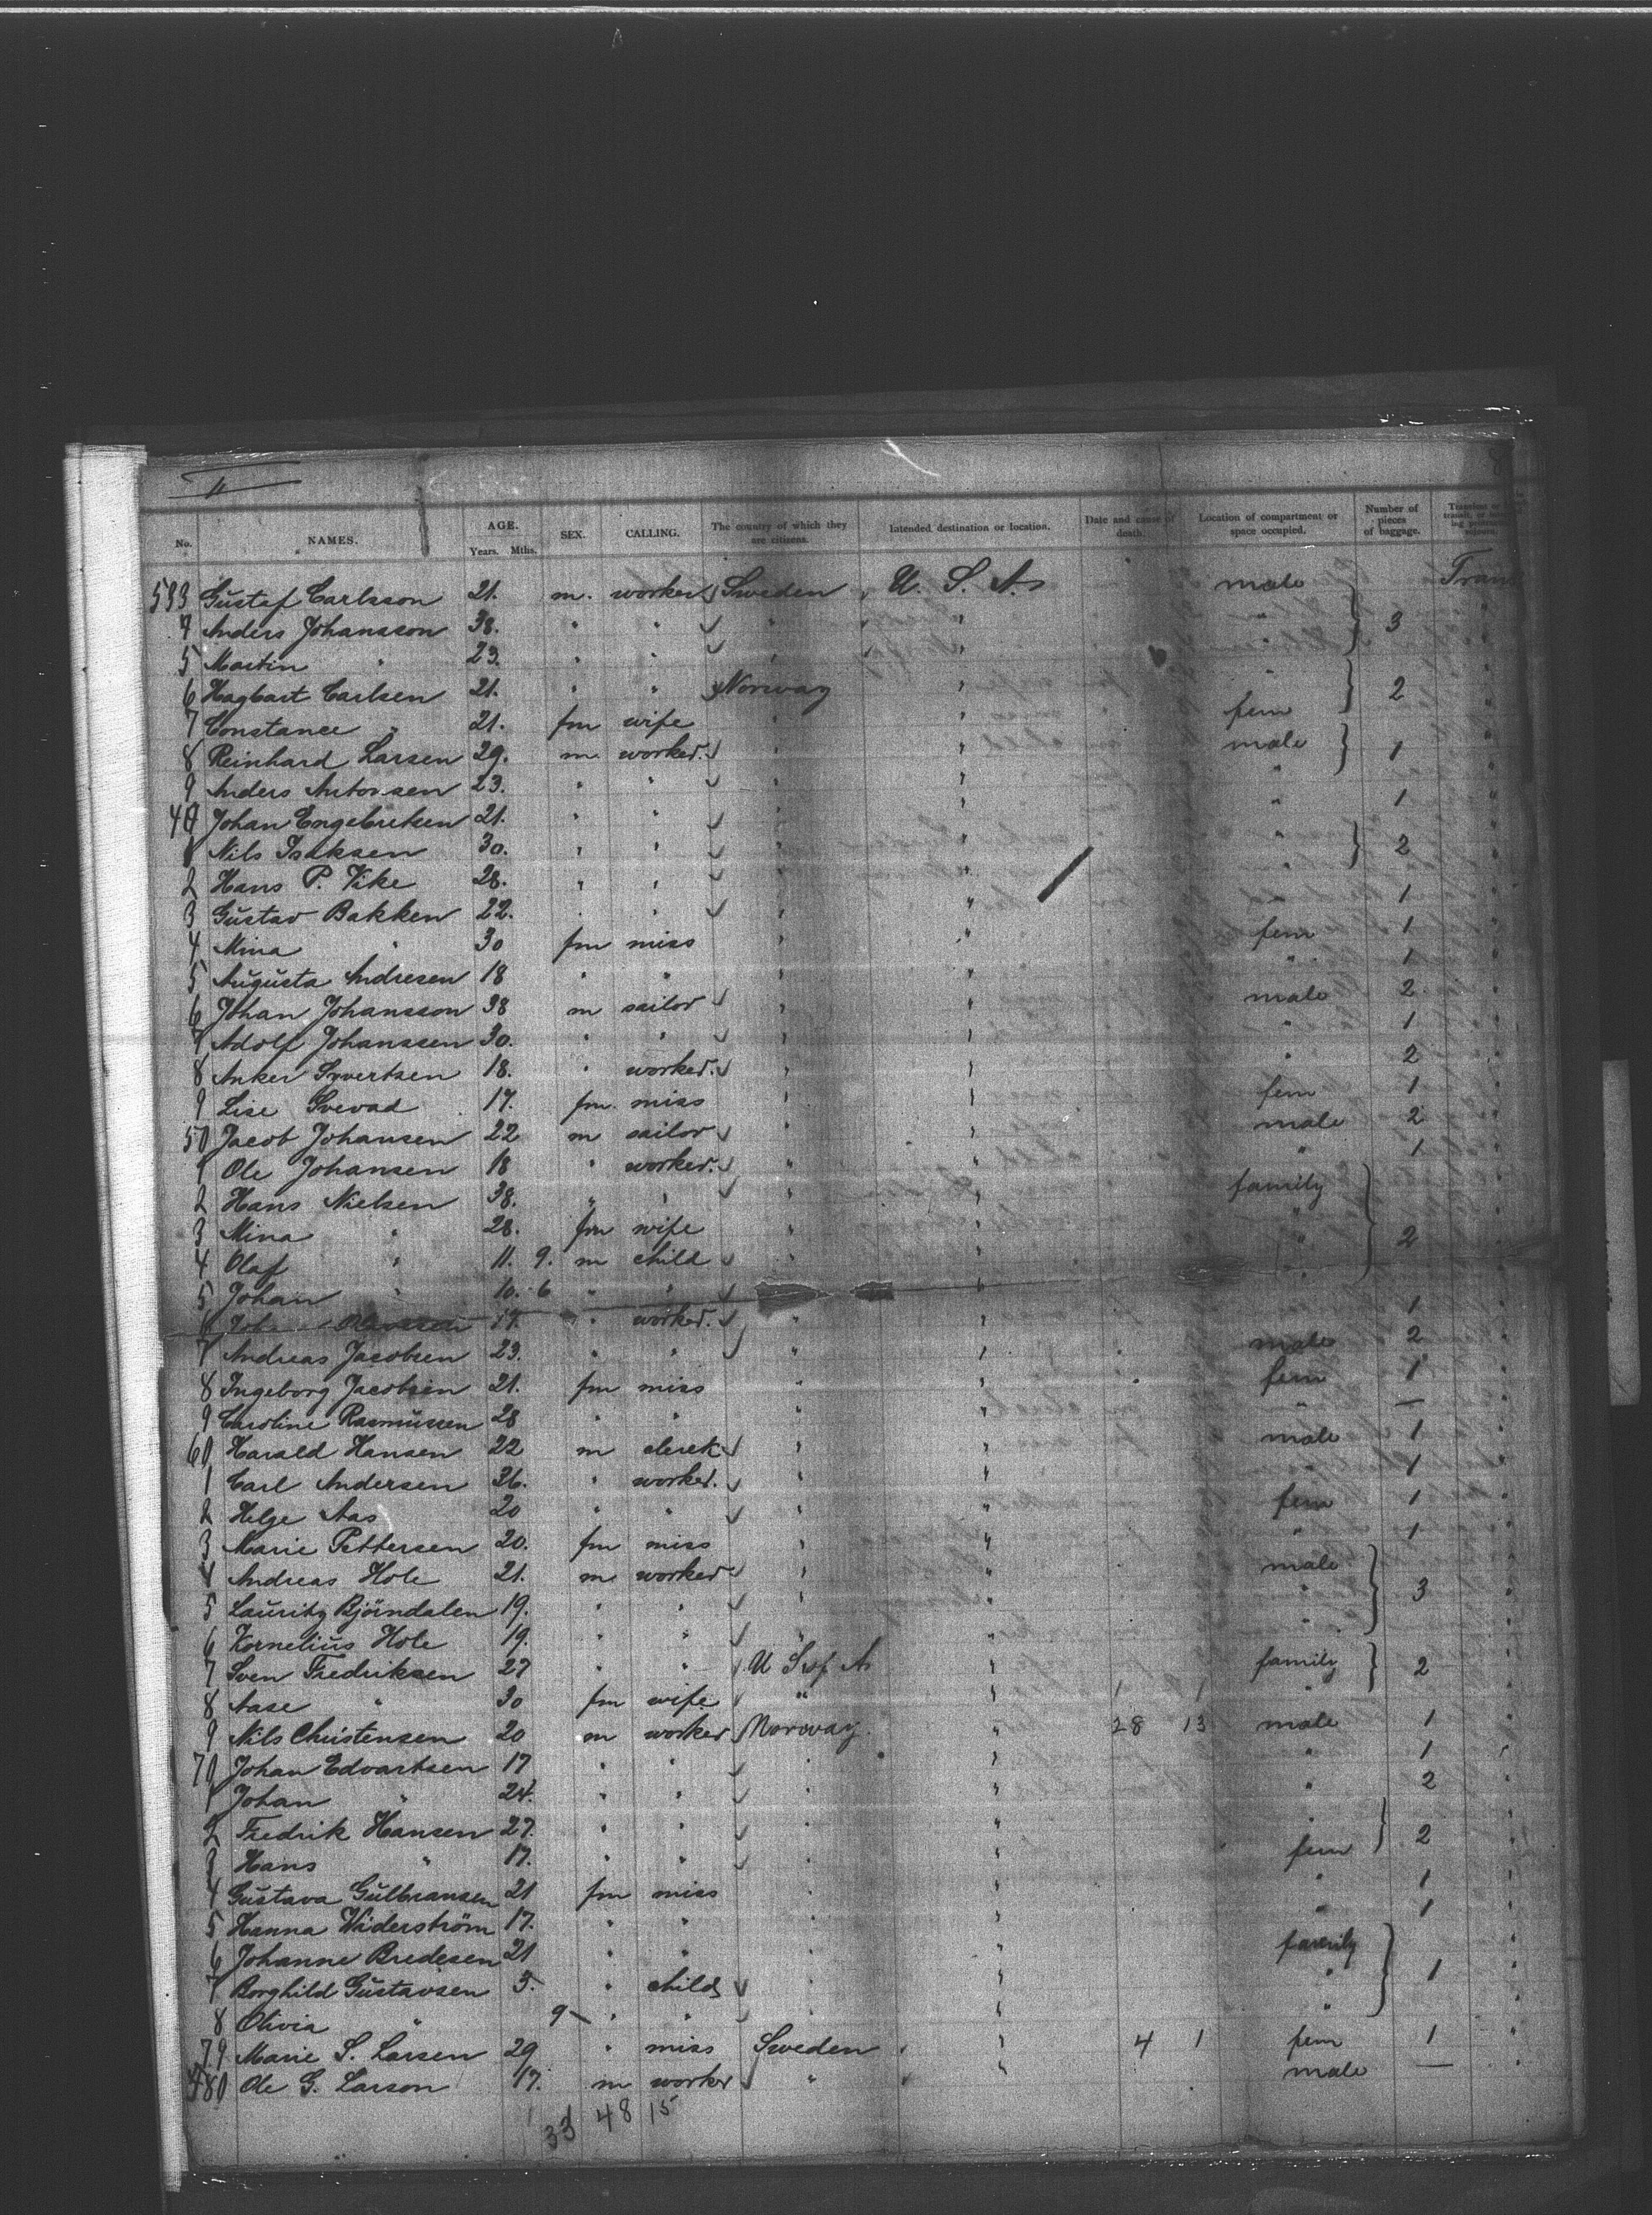 II
No. NAMES. AGE. Years. Mths. SEX. CALLING. The country of which they are citizens. Intended destination or location. Date and cause of death. Location of compartment or space occupied. Number of pieces of baggage.
533 Gustaf Carlsson 21. m. worker Sweden U. S. A. male Trans
4 Anders Johansson 38. " " " " " 3 "
5 Martin " 23. " " " " "
6 Hagbart Carlsen 21. " " Norway " " 2 "
7 Constance " 21. fm wife " " fem "
8 Reinhard Larsen 29. m. worker. " " male 1 "
9 Anders Antonsen 23. " " " " " 1 "
40 Johan Engebretsen 21. " " " " "
1 Nils Isaksen 30. " " " " " 2 "
2 Hans P. Vike 28. " " " " 1
3 Gustav Bakken 22. " " " " 1
4 Mina " 30 fm miss " " fem 1 "
5 Augusta Andresen 18 " " " " " 1
6 Johan Johansson 38 m sailor " " male 2 "
7 Adolf Johanssen 30. " " " " " 1 "
8 Anker Syvertsen 18. " worker. " " " 2 "
9 Lise Svevad 17. fm. miss " " fem 1 "
50 Jacob Johansen 22 m sailor " " male 2 "
1 Ole Johansen 18 " worker. " " " 1 "
2 Hans Nielsen 38. " " " " family
3 Mina " 28. fm wife " " " 2
4 Olaf " 11. 9. m child " " "
5 Johan " 10. 6 " " " "
6 17. " worker. " " 1
7 Andreas Jacobsen 23. " " " " male 2 "
8 Ingeborg Jacobsen 21. fm miss " " fem 1 "
9 Caroline Rasmussen 28 " " " " " —
60 Harald Hansen 22 m clerek " " male 1 "
1 Carl Andersen 36. " worker. " " " 1 "
2 Helge Aas 20 " " " " fem 1 "
3 Marie Pettersen 20. fm miss " " " 1
4 Andreas Hole 21. m worker " " male
5 Lauritz Bjöindalen 19. " " " " " 3 "
6 Kornelius Hole 19. " " " " "
7 Sven Fredriksen 27 " " U S of A " family 2 "
8 Aase " 30 fm wife " " 1 1 "
9 Nils Christensen 20 m worker Norway. " 28 13 male 1 "
70 Johan Edvartsen 17 " " " " 1 "
1 Johan " 24. " " " " " 2
2 Fredrik Hansen 27. " " " " " 2 "
3 Hans " 17. " " " fem
4 Gustava Gulbransen 21 fm miss " " " 1 "
5 Hanna Widerström 17. " " " " " 1
6 Johanne Bredesen 21 " " " family "
7 Borghild Gustavsen 3. " child " " " 1 "
8 Olivia " 9 " " " " " "
79 Marie S. Larsen 29 " miss Sweden " 4 1 fem 1 "
580 Ole G. Larson 17. m worker " " male — "
1 33 48 15